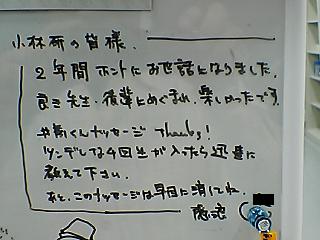 小林研の皆様、
2年間ホントにお世話になりました。
良き先生・後輩にめぐまれ、楽しかったです。
くんメッセージ Thanks!
ツンデレな4回生が入ったら迅速に
教えて下さい。
あと、このメッセージは早目に消してね。